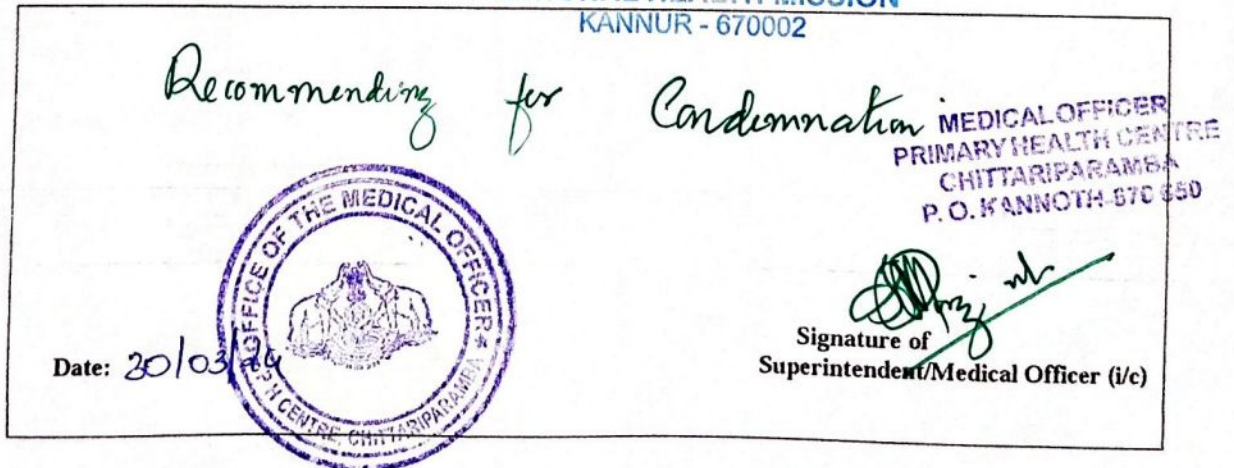 HEALTH MISSION
KANNUR - 670002
Recommending for Condemnation
MEDICAL OFFICER
PRIMARY HEALTH CENTRE
CHITTARIPARAMBA
P. O. KANNOTH-670 650
OFFICE OF THE MEDICAL OFFICER
P H CENTRE, CHITTARIPARAMBA
Signature of
Superintendent/Medical Officer (i/c)
Date: 30/03/